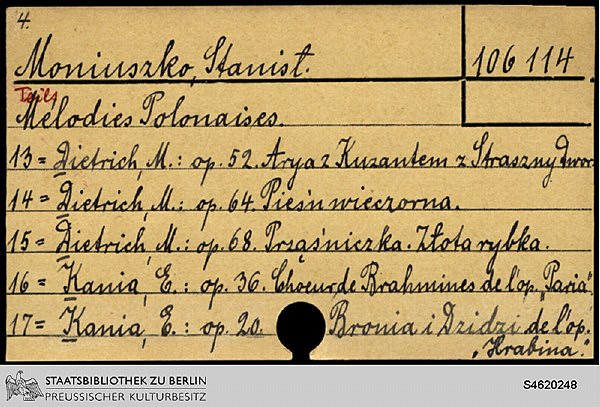 4.
Moniuszko, Stanisł.
106 114
Teils
Mélodies Polonaises.
13= Dietrich, M.: op. 52. Arya z Kuzantem z Straszny Dwor.
14= Dietrich, M.: op. 64. Pieśn wieczorna.
15= Dietrich, M.: op. 68. Prząśniczka. Złota rybka.
16= Kania, E.: op. 36. Choeur de Brahmines de l'op. „Paria".
17= Kania, E.: op. 20. Bronia i Dzidzi de l'op.
„Hrabina."
STAATSBIBLIOTHEK ZU BERLIN
PREUSSISCHER KULTURBESITZ
S4620248